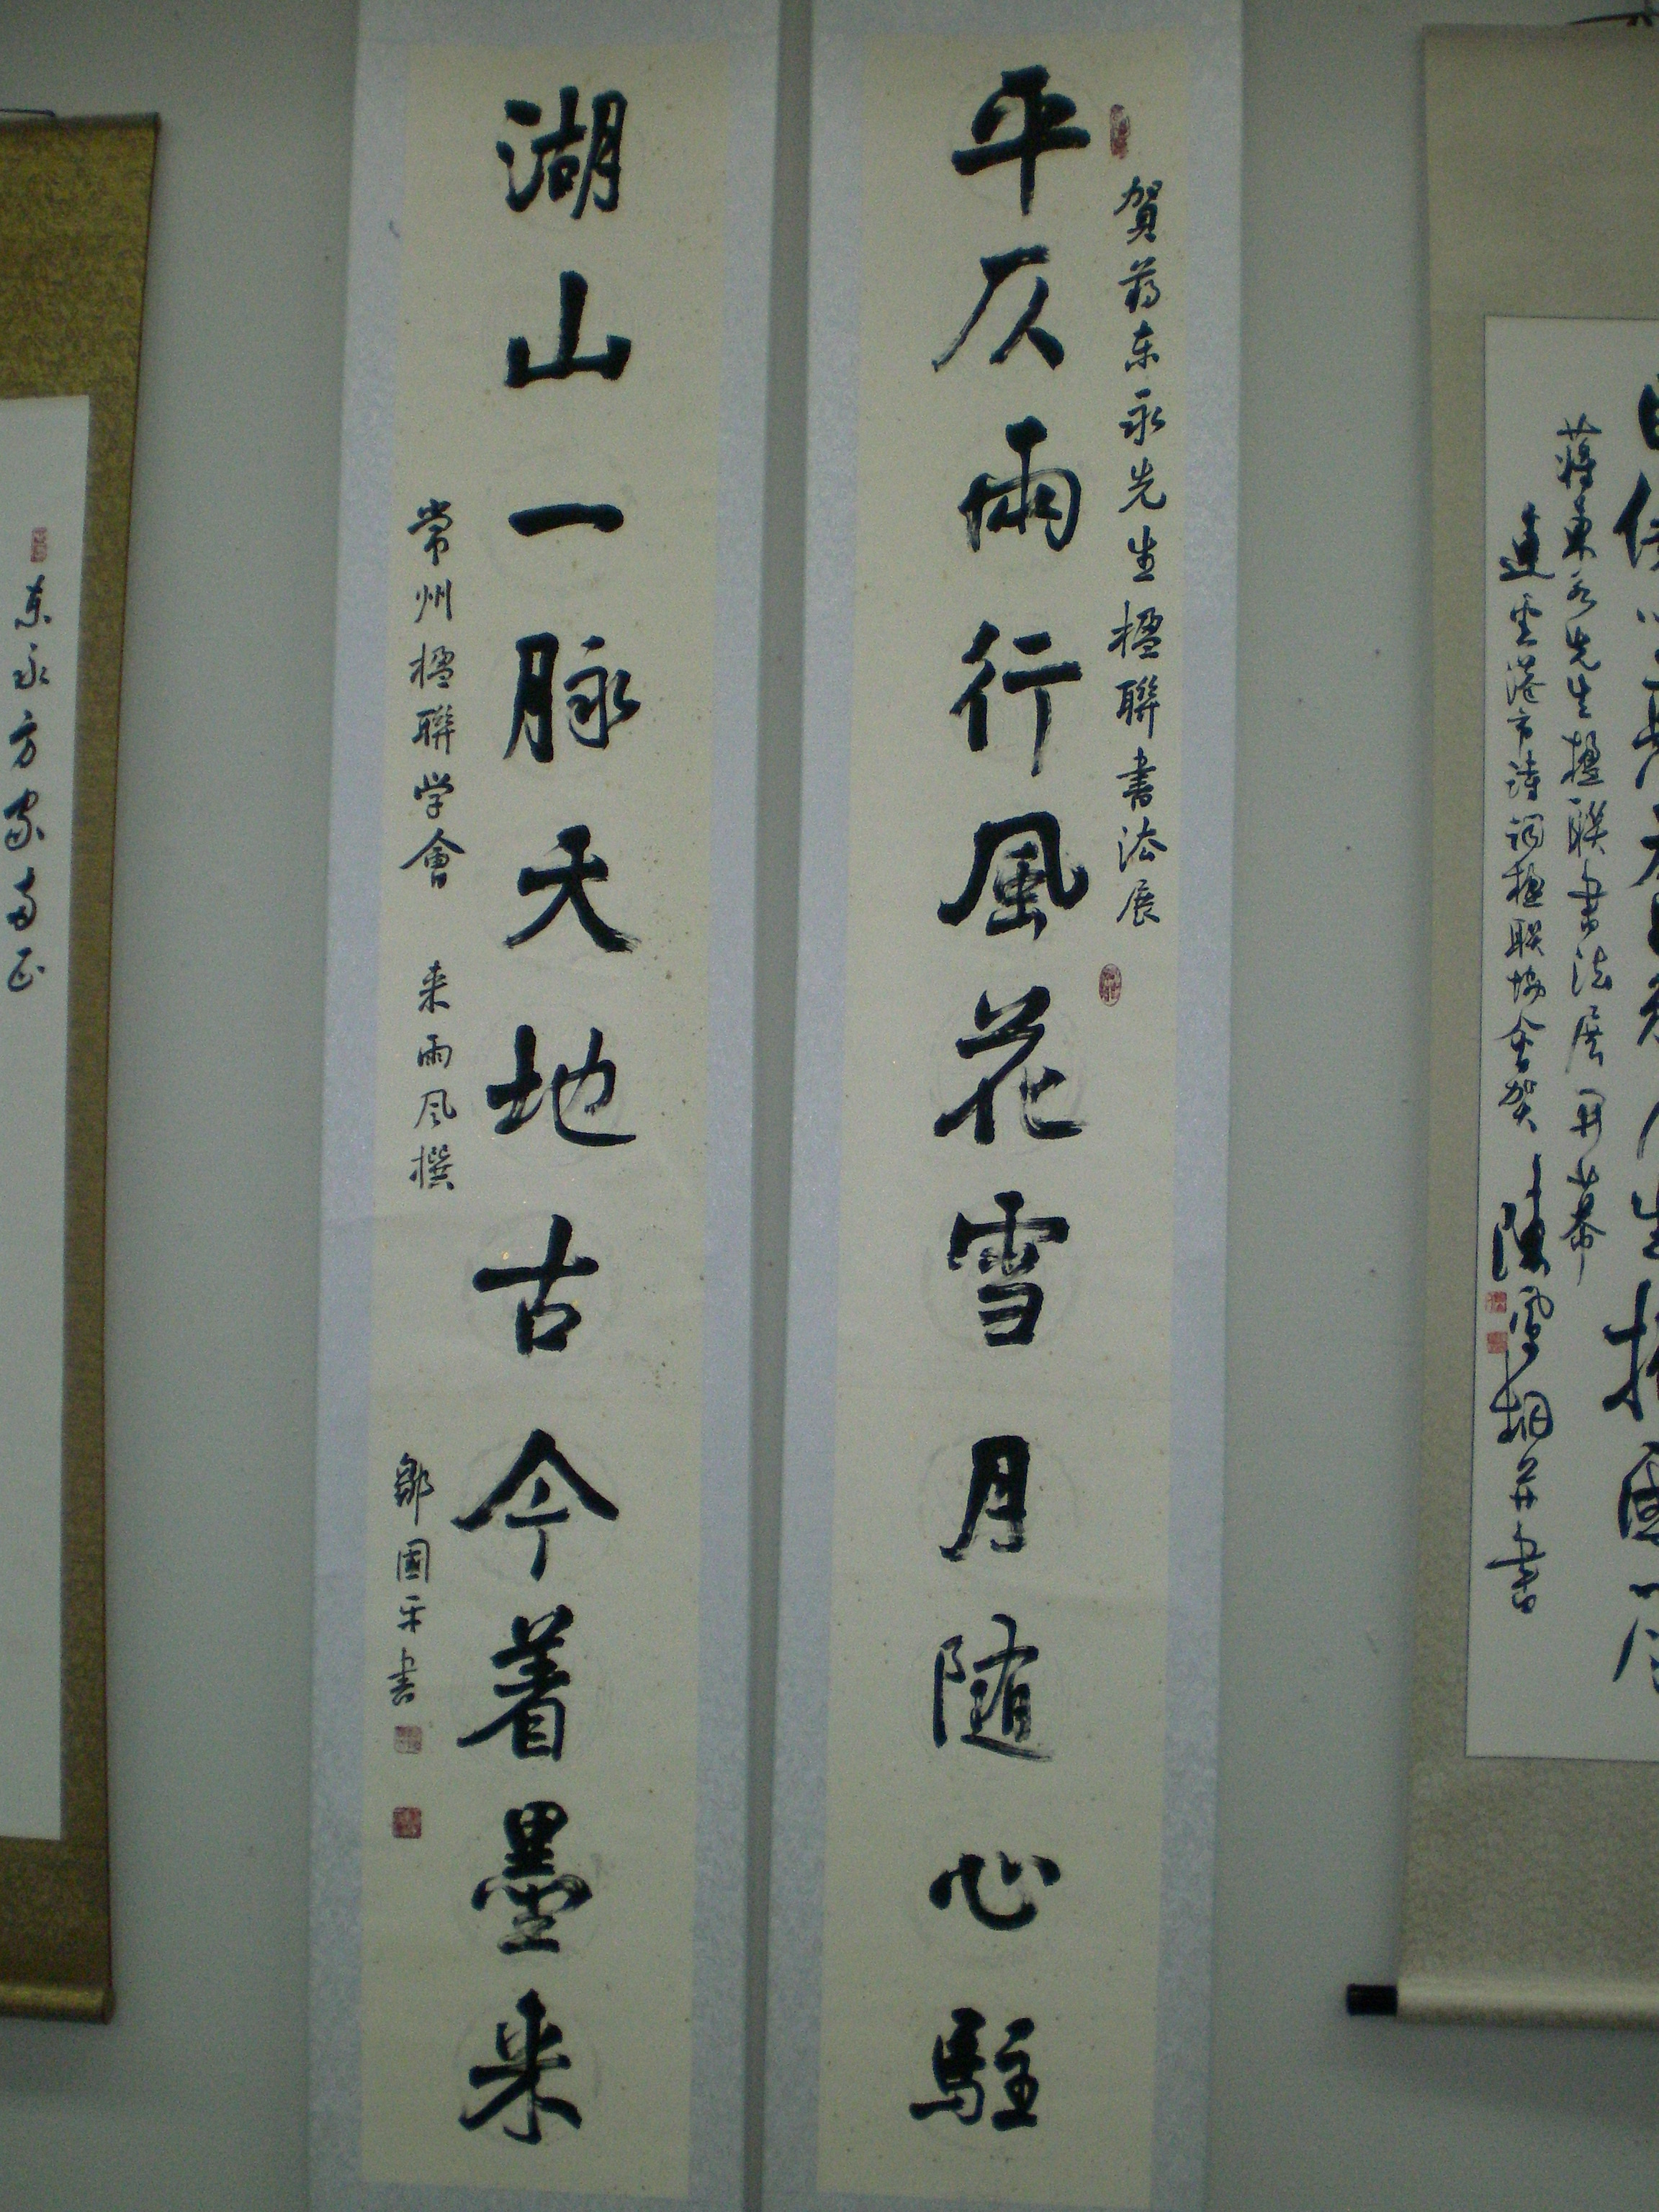 賀蒋东永先生楹聯書法展
平仄雨行風花雪月随心駐
湖山一脉天地古今着墨来
常州楹聯学會 来雨风撰 鄒國平書
蒋東永先生楹联書法展開幕
連雲港市诗词楹联協会贺 陳雪桐并書
东永方家两正